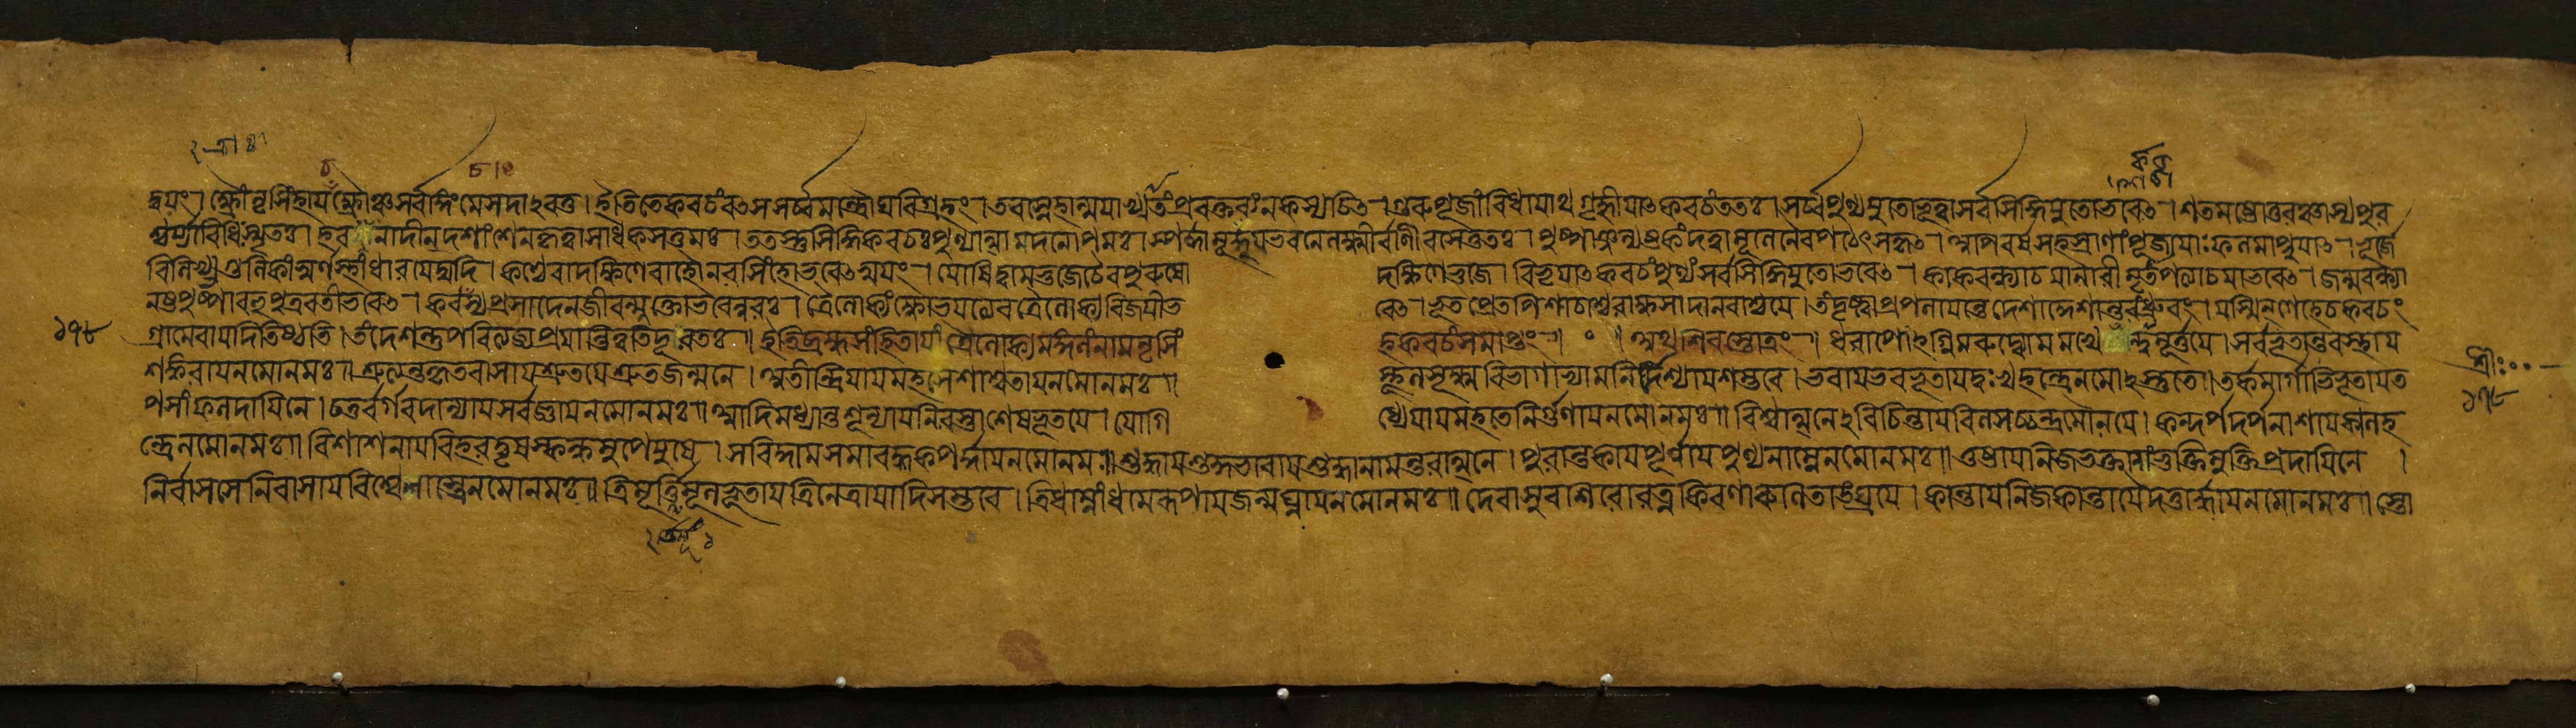 দ্বয়ং। ক্ষ্রৌং নৃসিংহায় ক্ষ্রৌঞ্চ সর্বাঙ্গং মে সদাঽবতু। ইতি তে কবচং বৎস সর্ব্বমন্ত্রৌঘবিগ্রহং। তব স্নেহান্ময়াখ্যাতং প্রবক্তব্যং ন কস্যচিৎ। গুরুপূজাং বিধায়াথ গৃহ্নীয়াৎ কবচং ততঃ। সর্ব্বপুণ্যযুতো ভূত্বা সর্বসিদ্ধিযুতো ভবেৎ। শতমষ্টোত্তরঞ্চাস্য পুর
শ্চর্য্যাবিধিঃ স্মৃতঃ। হবনাদীন্ দশাংশেন কৃত্বা সাধকসত্তমঃ। ততস্তু সিদ্ধিকবচঃ পুণ্যাত্মা মদনোপমঃ। স্পর্দ্ধামুদ্ধূয় ভবনে লক্ষ্মীর্বাণী বসেত্ততঃ। পুষ্পাঞ্জল্যষ্টকং দত্বা মূলেনৈব পঠেৎ সকৃৎ। অপি বর্ষসহস্রাণাং পূজায়াঃ ফলমাপ্নুয়াৎ। ভূর্জে
বিলিখ্য গুলিকাং স্বর্ণস্থাং ধারয়েদ্যদি। কণ্ঠে বা দক্ষিণে বাহৌ নরসিংহো ভবেৎ স্বয়ং। যোষিদ্বামভুজে চৈব পুরুষো দক্ষিণে ভুজে। বিভৃয়াৎ কবচং পুণ্যং সর্বসিদ্ধিযুতো ভবেৎ। কাকবন্ধ্যা চ যা নারী মৃতাপত্যা চ যা ভবেৎ। জন্মবন্ধ্যা
নষ্টপুষ্পা বহুপুত্রবতী ভবেৎ। কবচস্য প্রসাদেন জীবন্মুক্তো ভবেন্নরঃ। ত্রৈলোক্যং ক্ষোভয়ত্যেব ত্রৈলোক্যবিজয়ী ভবেৎ। ভূতপ্রেতপিশাচাশ্চ রাক্ষসা দানবাশ্চ যে। তং দৃষ্ট্বা প্রপলায়ন্তে দেশাদ্দেশান্তরং ধ্রুবং। যস্মিন্ গেহে চ কবচং
১৭৮ গ্রামে বা যদি তিষ্ঠতি। তং দেশন্তু পরিত্যজ্য প্রয়ান্তি হ্যতিদূরতঃ॥ ইতি ব্রহ্মসংহিতায়াং ত্রৈলোক্যমঙ্গলং নাম নৃসিংহকবচং সমাপ্তং॥ ॰ ॥ অথ শিবস্তোত্রং॥ ধরাপোঽগ্নিমরুদ্ব্যোমমখেশেন্দ্বর্কমূর্ত্তয়ে। সর্বভূতান্তরস্থায়
শঙ্করায় নমো নমঃ॥ শ্রুত্যন্তকৃতবাসায় শ্রুতয়ে শ্রুতজন্মনে। অতীন্দ্রিয়ায় মহসে শাশ্বতায় নমো নমঃ॥ স্থূলসূক্ষ্মবিভাগাভ্যামনির্দেশ্যায় শম্ভবে। ভবায় ভবভূতায় দুঃখহন্ত্রে নমোঽস্তু তে॥ তর্কমার্গাভিভূতায় ত
পসাং ফলদায়িনে। চতুর্বর্গবদান্যায় সর্বজ্ঞায় নমো নমঃ॥ আদিমধ্যান্তশূন্যায় নিরস্তাশেষভূতয়ে। যোগিধ্যেয়ায় মহতে নির্গুণায় নমো নমঃ॥ বিশ্বাত্মনেঽবিচিন্ত্যায় বিলসচ্চন্দ্রমৌলয়ে। কন্দর্পদর্পনাশায় কালহ
ন্ত্রে নমো নমঃ॥ বিশাশনায় বিহরদ্বৃষস্কন্ধমুপেয়ুষে। সরিদ্দামসমাবদ্ধকপর্দ্দায় নমো নমঃ॥ শুদ্ধায় শুদ্ধভাবায় শুদ্ধানামন্তরাত্মনে। পুরান্তকায় পূর্ণায় পুণ্যনাম্নে নমো নমঃ॥ তুষ্টায় নিজভক্তানাং ভুক্তিমুক্তিপ্রদায়িনে।
নির্বাসসে নিবাসায় বিশ্বেশাস্ত্রে নমো নমঃ॥ ত্রিমূর্ত্তিমূলভূতায় ত্রিনেত্রায়াদিসম্ভবে। ত্রিধাম্নাং ধামরূপায় জন্মঘ্নায় নমো নমঃ॥ দেবাসুরশিরোরত্নকিরণারুণিতাঙ্ঘ্রয়ে। কান্তায় নিজকান্তায়ৈ দত্তার্দ্ধায় নমো নমঃ॥ স্তো
১৭৮